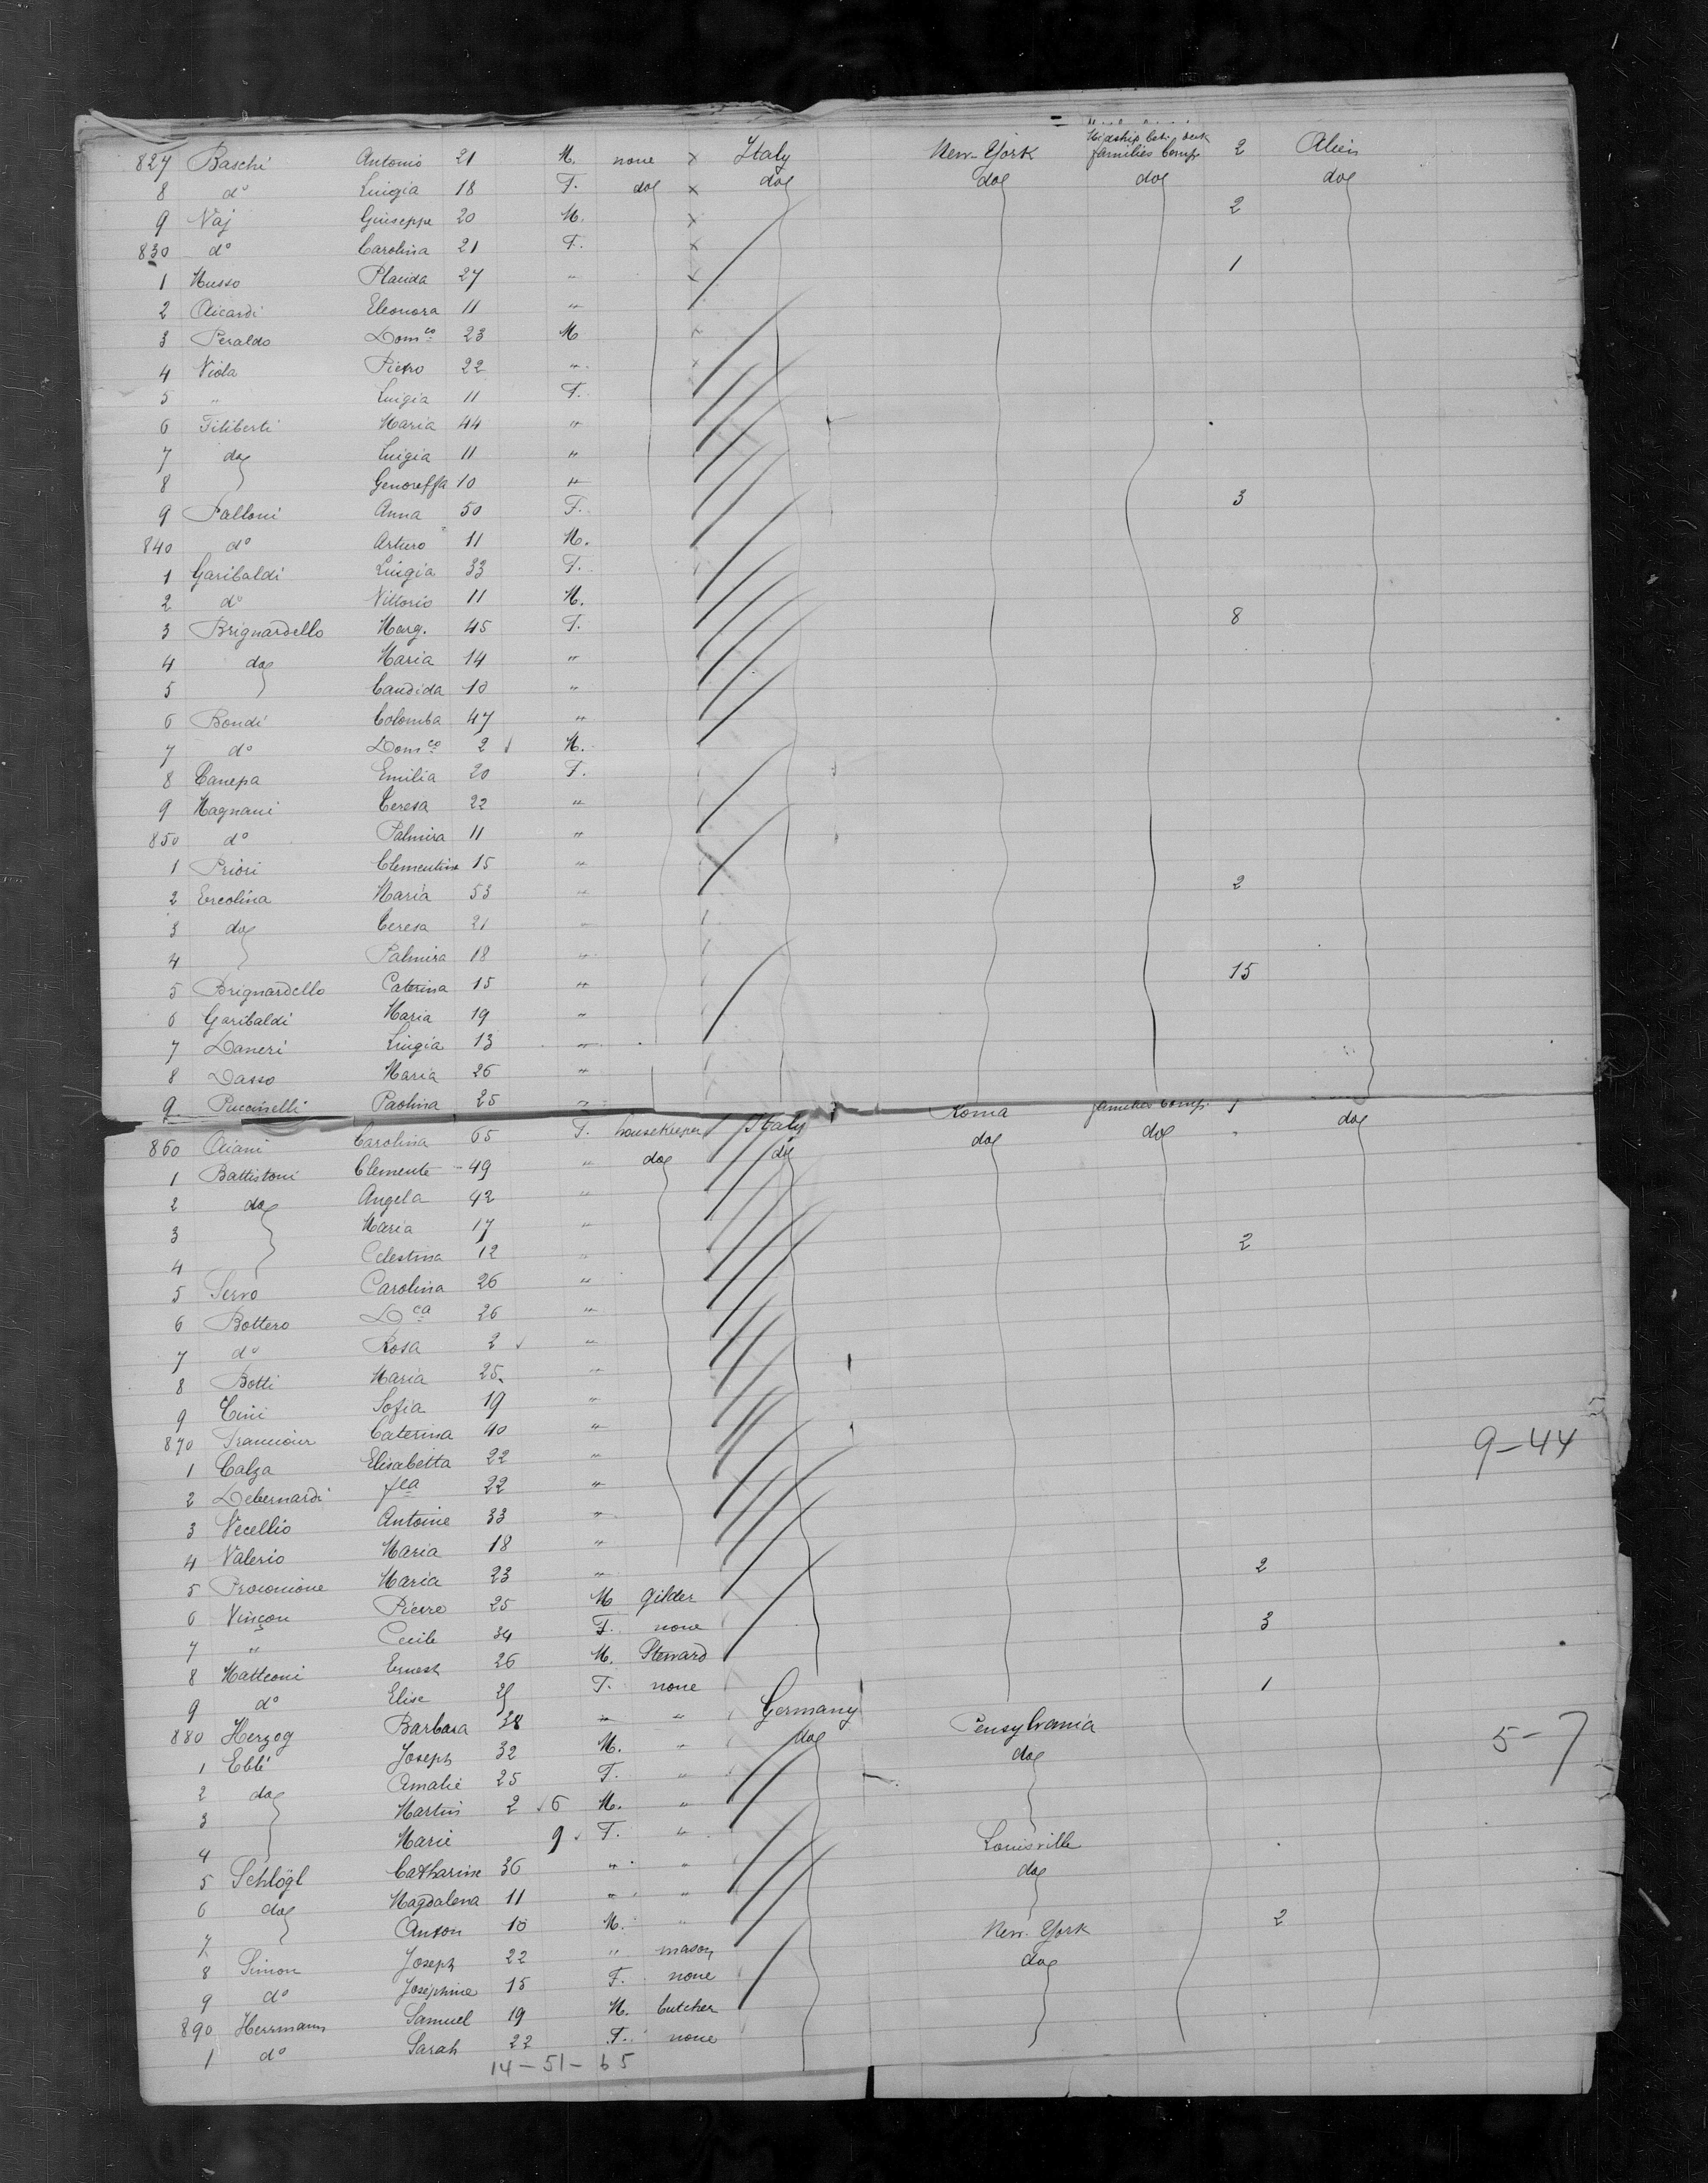 Midship bet. deck
827 Baschi Antonio 21 M. none x Italy New-York families Comp. 2 Alien
8 do Luigia 18 F. do x do do do do
9 Naj Giuseppe 20 M. x 2
830 do Carolina 21 F. x
1 Musso Placida 27 " x 1
2 Aicardi Eleonora 11 "
3 Peraldo Domco 23 M
4 Viola Pietro 22 " x
5 " Luigia 11 F.
6 Filiberti Maria 44 "
7 do Luigia 11 "
8 Genoreffa 10 "
9 Falloni Anna 50 F. 3
840 do Arturo 11 M.
1 Garibaldi Luigia 33 F.
2 do Vittorio 11 M.
3 Brignardello Marg. 45 F. 8
4 do Maria 14 "
5 Candida 10 "
6 Bondi Colomba 47 "
7 do Domco 2 M.
8 Canepa Emilia 20 F.
9 Magnani Teresa 22 "
850 do Palmira 11 "
1 Priori Clementina 15 "
2 Ercolina Maria 53 " 2
3 do Teresa 21 "
4 Palmira 18 "
5 Brignardello Caterina 15 " 15
6 Garibaldi Maria 19 "
7 Daneri Luigia 13 "
8 Dasso Maria 26 "
9 Puccinelli Paolina 25 "
860 Aiani Carolina 65 F. housekeeper Italy Roma families Comp. 1 do
1 Battistoni Clemente 49 " do do do do "
2 do Angela 42 "
3 Maria 17 "
4 Celestina 12 " 2
5 Servo Carolina 26 "
6 Bottero Dca 26 "
7 do Rosa 2 "
8 Botti Maria 25 "
9 Cini Sofia 19 "
870 Caterina 40 "
9-44
1 Calza Elisabetta 22 "
2 Debernardi fca 22 "
3 Vecellio Antoine 33 "
4 Valerio Maria 18 "
5 Maria 23 " 2
6 Vinçon Pierre 25 M gilder
7 " Cecile 34 F. none 3
8 Matteoni Ernest 26 M. Steward
9 do Elise F. none 1
880 Herzog Barbara 38 " " Germany Pensylvania
5-7
1 Eblé Joseph 32 M. " do do
2 do Amalie 25 F. "
3 Martin 2 6 M. "
4 Marie 9 F. "
5 Schlögl Catharine 36 " " Louisville
6 do Magdalena 11 " " do
7 Anton 10 M. "
8 Simon Joseph 22 " mason New-York 2
9 do Josephine 15 F. none do
890 Herrmann Samuel 19 M. butcher
1 do Sarah 22 F. none
14-51-65